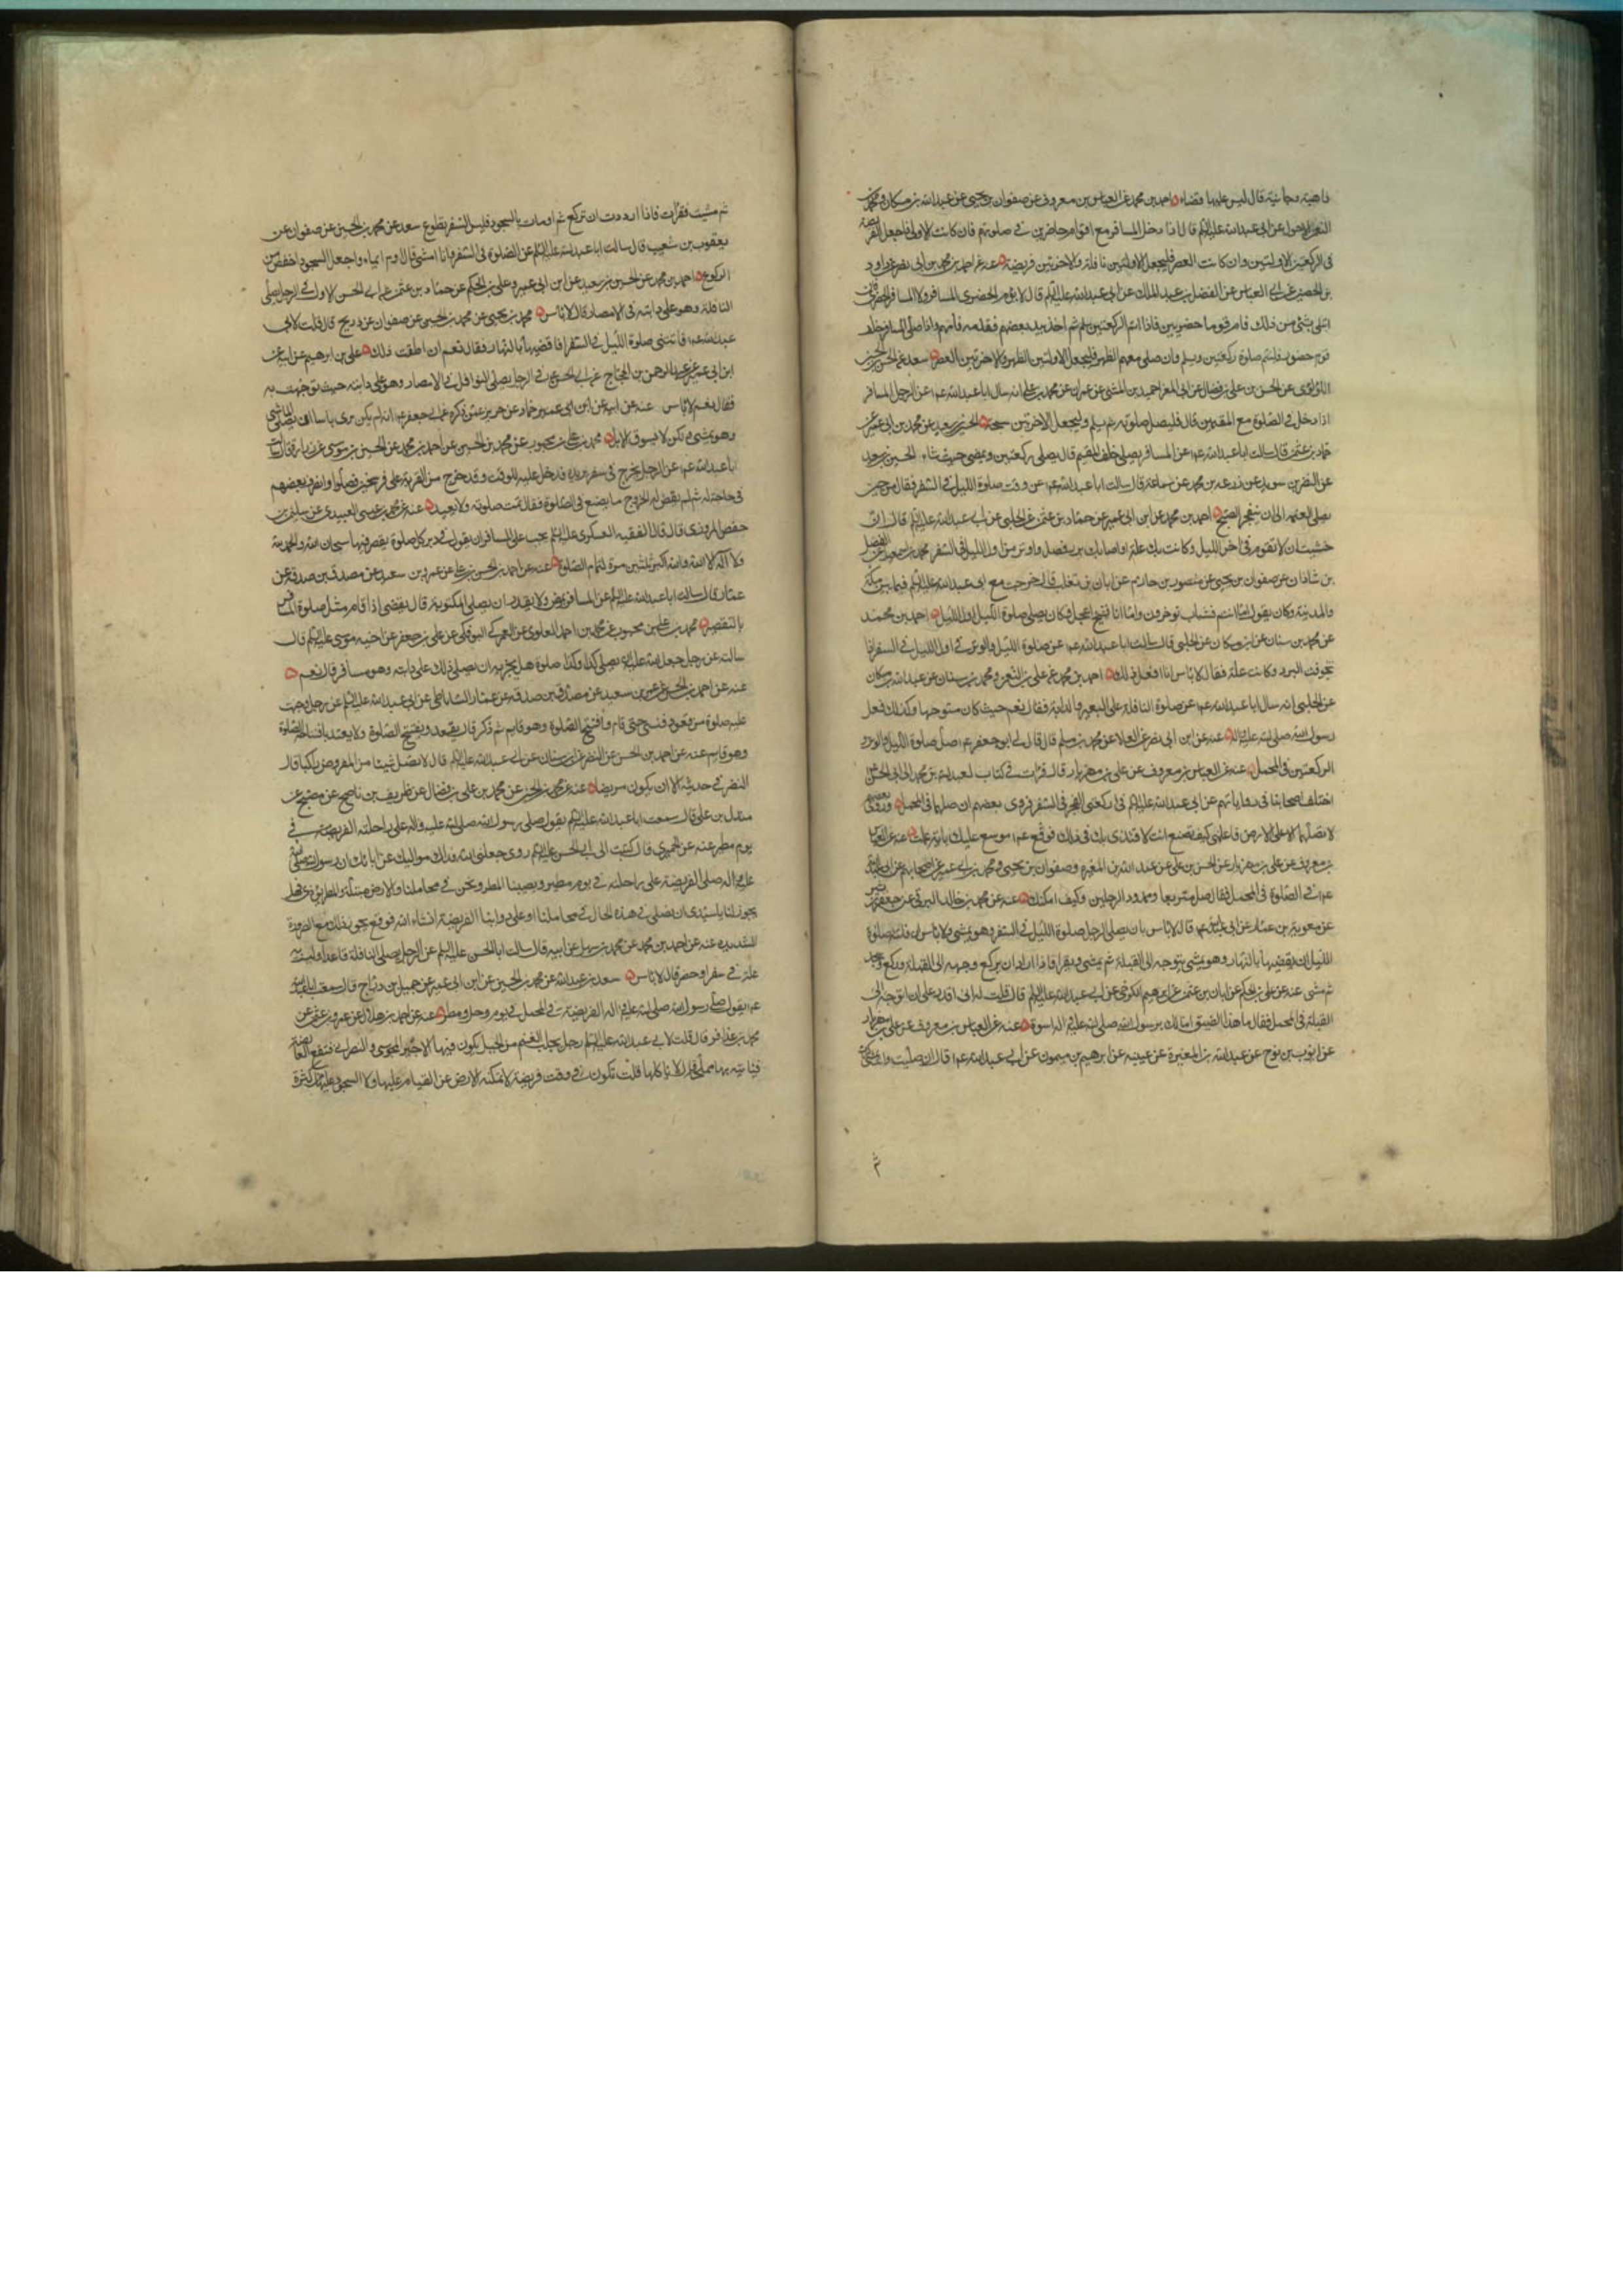 ماضية وجائية قال ليس عليها قضاء احمد بن محمد عن العباس بن معروف عن صفوان بن يحيى عن عبد الله بن مسكان ومحمد بن
النعمان الاحول عن ابى عبد الله عليه السلم قال اذا دخل المسافر مع اقوام حاضرين فى صلوتهم فان كانت الاولى فليجعل الفريضة
فى الركعتين الاولتين وان كانت العصر فليجعل الاولتين نافلة والاخرتين فريضة عنه عن احمد بن محمد بن ابى نصر عن داود
بن الحصين عن ابى العباس الفضل بن عبد الملك عن ابى عبد الله عليه السلم قال لا يؤم الحضرى المسافر ولا المسافر الحضرى فان
ابتلى بشئ من ذلك فام قوما حضريين فاذا اتم الركعتين سلم ثم اخذ بيد بعضهم فقدمه فامهم واذا صلى المسافر خلف
قوم حضور فليتم صلوة ركعتين ويسلم وان صلى معهم الظهر فليجعل الاولتين الظهر والاخرتين العصر سعد عن
عن الحسن بن على بن فضال عن ابى المغرا حميد بن المثنى عن عمران عن محمد بن على انه سال ابا عبد الله ع عن الرجل المسافر
اذا دخل فى الصلوة مع المقيمين قال فليصل صلوته ثم يسلم وليجعل الاخرتين سبحة الحسين بن سعيد عن محمد بن ابى عمير عن
حماد بن عثمن قال سالت ابا عبد الله ع عن المسافر يصلى خلف المقيم قال يصلى ركعتين ويمضى حيث شاء الحسين بن سعيد
عن النضر بن سويد عن زرعة بن محمد عن سماعة قال سالت ابا عبد الله ع عن وقت صلوة الليل فى السفر فقال من حين
يصلى العتمة الى ان ينفجر الصبح احمد بن محمد عن ابن ابى عمير عن حماد بن عثمن عن الحلبى عن ابى عبد الله عليه السلم قال ان
خشيت ان لا تقوم فى اخر الليل وكانت بك علة او اصابك برد فصل واوتر من اول الليل فى السفر محمد بن اسمعيل عن الفضل
بن شاذان عن صفوان بن يحيى عن منصور بن حازم عن ابان بن تغلب قال خرجت مع ابى عبد الله عليه السلم فيما بين مكة
والمدينة وكان يقول اما انتم فشباب توخرون واما انا فشيخ اعجل وكان يصلى صلوة الليل اول الليل احمد بن محمد
عن محمد بن سنان عن ابن مسكان عن الحلبى قال سالت ابا عبد الله ع عن صلوة الليل والوتر فى اول الليل فى السفر اذا
تخوفت البرد وكانت علة فقال لا باس انا افعل ذلك احمد بن محمد عن على بن النعمن ومحمد بن سنان عن عبد الله بن مسكان
عن الحلبى انه سال ابا عبد الله ع عن صلوة النافلة على البعير والدابة فقال نعم حيث كان متوجها وكذلك فعل
رسول الله صلى الله عليه واله عنه عن ابن ابى نصر عن العلا عن محمد بن مسلم قال قال لى ابو جعفر ع صل صلوة الليل والوتر و
الركعتين فى المحمل عنه عن العباس بن معروف عن على بن مهزيار قال قرات فى كتاب لعبد الله بن محمد الى ابى الحسن
اختلف اصحابنا فى رواياتهم عن ابى عبد الله عليه السلم فى ركعتى الفجر فى السفر فروى بعضهم ان صلهما فى المحمل وروى بعضهم
لا تصلهما الا على الارض فاعلمنى كيف تصنع انت لاقتدى بك فى ذلك فوقع ع موسع عليك باية عملت عنه عن العباس
بن معروف عن على بن مهزيار عن الحسن بن على عن عبد الله بن المغيرة وصفوان بن يحيى ومحمد بن ابى عمير عن اصحابهم عن ابى عبد الله
ع فى الصلوة فى المحمل فقال صل متربعا وممدود الرجلين وكيف امكنك عنه عن محمد بن خالد البرقى عن جعفر بن بشير
عن معوية بن عمار عن ابى عبد الله ع قال لا باس بان يصلى الرجل صلوة الليل فى السفر وهو يمشى ولا باس ان فاتته صلوة
الليل ان يقضيها بالنهار وهو يمشى يتوجه الى القبلة ثم يمشى ويقرا فاذا اراد ان يركع وجهه الى القبلة وركع وسجد
ثم مشى عنه عن على بن الحكم عن ابان بن عثمن عن ابرهيم الكوفى عن ابى عبد الله عليه السلم قال قلت له انى اقدر على ان اتوجه الى
القبلة فى المحمل فقال ما هذا الضيق اما لك برسول الله صلى الله عليه واله اسوة عنه عن العباس بن معروف عن على بن مهزيار
عن ايوب بن نوح عن عبد الله بن المغيرة عن عيينة عن ابرهيم بن ميمون عن ابى عبد الله ع قال ان صليت وانت تمشى كبرت
ثم
ثم مشيت فقرات فاذا اردت ان تركع ثم اومات بالسجود فليس السفر تطوع سعد عن محمد بن الحسين عن صفوان عن
يعقوب بن شعيب قال سالت ابا عبد الله عليه السلم عن الصلوة فى السفر وانا امشى قال اوم ايماء واجعل السجود اخفض من
الركوع احمد بن محمد عن الحسين بن سعيد عن ابن ابى عمير وعلى بن الحكم عن حماد بن عثمن عن ابى الحسن الاول فى الرجل يصلى
النافلة وهو على دابته فى الامصار قال لا باس محمد بن يحيى عن محمد بن الحسين عن صفوان عن ذريح قال قلت لابى
عبد الله ع فاتتنى صلوة الليل فى السفر افاقضيها بالنهار فقال نعم ان اطقت ذلك على بن ابرهيم عن ابيه عن
ابن ابى عمير عن عبد الرحمن بن الحجاج عن ابى الحسن ع فى الرجل يصلى النوافل فى الامصار وهو على دابته حيث توجهت به
فقال نعم لا باس عنه عن ابيه عن ابن ابى عمير عن حماد عن حريز عمن ذكره عن ابى جعفر ع انه لم يكن يرى باسا ان يصلى الماشى
وهو يمشى ولكن لا يسوق الابل محمد بن على بن محبوب عن محمد بن الحسين عن احمد بن محمد عن الحسين بن موسى عن زرارة قال سالت
ابا عبد الله ع عن الرجل يخرج فى سفر يريده فدخل عليه الوقت وقد خرج من القرية على فرسخين فصلوا وانصرف بعضهم
فى حاجة له ثم لم يقض له الخروج ما يصنع فى الصلوة فقال تمت صلوته ولا يعيد عنه عن محمد بن عيسى العبيدى عن سليمن بن
حفص المروزى قال قال الفقيه العسكرى عليه السلم يجب على المسافر ان يقول فى دبر كل صلوة يقصر فيها سبحان الله والحمد لله
ولا اله الا الله والله اكبر ثلثين مرة لتمام الصلوة عنه عن احمد بن الحسن بن على عن عمرو بن سعيد عن مصدق بن صدقة عن
عمار قال سالت ابا عبد الله عليه السلم عن المسافر يمرض ولا يقدر ان يصلى المكتوبة قال يقضى اذا قام مثل صلوة المسافر
بالتقصير محمد بن على بن محبوب عن محمد بن احمد العلوى عن العمركى البوفكى عن على بن جعفر عن اخيه موسى عليه السلم قال
سالته عن رجل جعل لله عليه ان يصلى كذا وكذا صلوة هل يجزيه ان يصلى ذلك على دابته وهو مسافر قال نعم
عنه عن احمد بن الحسن عن عمرو بن سعيد عن مصدق بن صدقة عن عمار الساباطى عن ابى عبد الله عليه السلم عن رجل وجبت
عليه صلوة من قعود فنسى حتى قام وافتتح الصلوة وهو قايم ثم ذكر قال يقعد ويفتتح الصلوة ولا يعتد بافتتاحه الصلوة
وهو قايم عنه عن احمد بن الحسن عن النضر عن ابن سنان عن ابى عبد الله عليه السلم قال لا تصل شيئا من المفروض راكبا قال
النضر فى حديثه الا ان يكون مريضا عنه عن محمد بن الحسين عن محمد بن على بن فضال عن ظريف بن ناصح عن مصبح عن
مندل بن على قال سمعت ابا عبد الله عليه السلم يقول صلى رسول الله صلى الله عليه واله على راحلته الفريضة فى
يوم مطير عنه عن الحميرى قال كتبت الى ابى الحسن عليه السلم روى جعلنى الله فداك مواليك عن ابائك ان رسول الله صلى الله
عليه واله صلى الفريضة على راحلته فى يوم مطير ويصيبنا المطر ونحن فى محاملنا والارض مبتلة والمطر يؤذى فهل
يجوز لنا يا سيدى ان نصلى فى هذه الحال فى محاملنا او على دوابنا الفريضة ان شاء الله فوقع يجوز ذلك مع الضرورة
الشديدة عنه عن احمد بن محمد عن محمد بن سهل عن ابيه قال سالت ابا الحسن عليه السلم عن الرجل يصلى النافلة قاعدا وليست به
علة فى سفر او حضر قال لا باس سعد بن عبد الله عن محمد بن الحسين عن ابن ابى عمير عن جميل بن دراج قال سمعت ابا عبد الله
ع يقول صلى رسول الله صلى الله عليه واله الفريضة فى المحمل فى يوم وحل ومطر عنه عن احمد بن هلال عن عمرو بن عثمن عن
محمد بن عذافر قال قلت لابى عبد الله عليه السلم رجل يجلب الغنم من الجبل يكون فيها الاجير المجوسى والنصرانى فتقع العارضة
فياتيه بها مملحة قال لا ياكلها قلت تكون فى وقت فريضة لا تمكنه الارض من القيام عليها ولا السجود عليها من كثرة